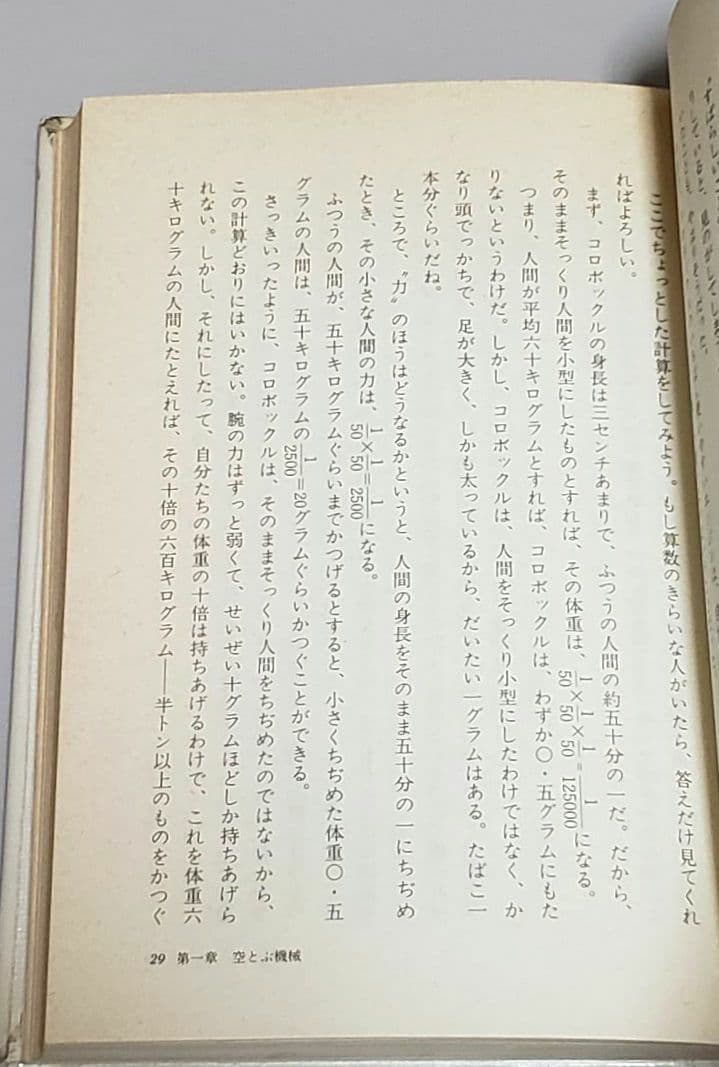 ここでちょっとした計算をしてみよう。もし算数のきらいな人がいたら、答えだけ見てくれ
ればよろしい。
まず、コロボックルの身長は三センチあまりで、ふつうの人間の約五十分の一だ。だから、
そのままそっくり人間を小型にしたものとすれば、その体重は、1/50×1/50×1/50=1/125000になる。
つまり、人間が平均六十キログラムとすれば、コロボックルは、わずか〇・五グラムにもた
りないというわけだ。しかし、コロボックルは、人間をそっくり小型にしたわけではなく、か
なり頭でっかちで、足が大きく、しかも太っているから、だいたい一グラムはある。たばこ一
本分ぐらいだね。
ところで、〝力〟のほうはどうなるかというと、人間の身長をそのまま五十分の一にちぢめ
たとき、その小さな人間の力は、1/50×1/50=1/2500になる。
ふつうの人間が、五十キログラムぐらいまでかつげるとすると、小さくちぢめた体重〇・五
グラムの人間は、五十キログラムの1/2500=20グラムぐらいかつぐことができる。
さっきいったように、コロボックルは、そのままそっくり人間をちぢめたのではないから、
この計算どおりにはいかない。腕の力はずっと弱くて、せいぜい十グラムほどしか持ちあげら
れない。しかし、それにしたって、自分たちの体重の十倍は持ちあげるわけで、これを体重六
十キログラムの人間にたとえれば、その十倍の六百キログラム――半トン以上のものをかつぐ
29 第一章 空とぶ機械